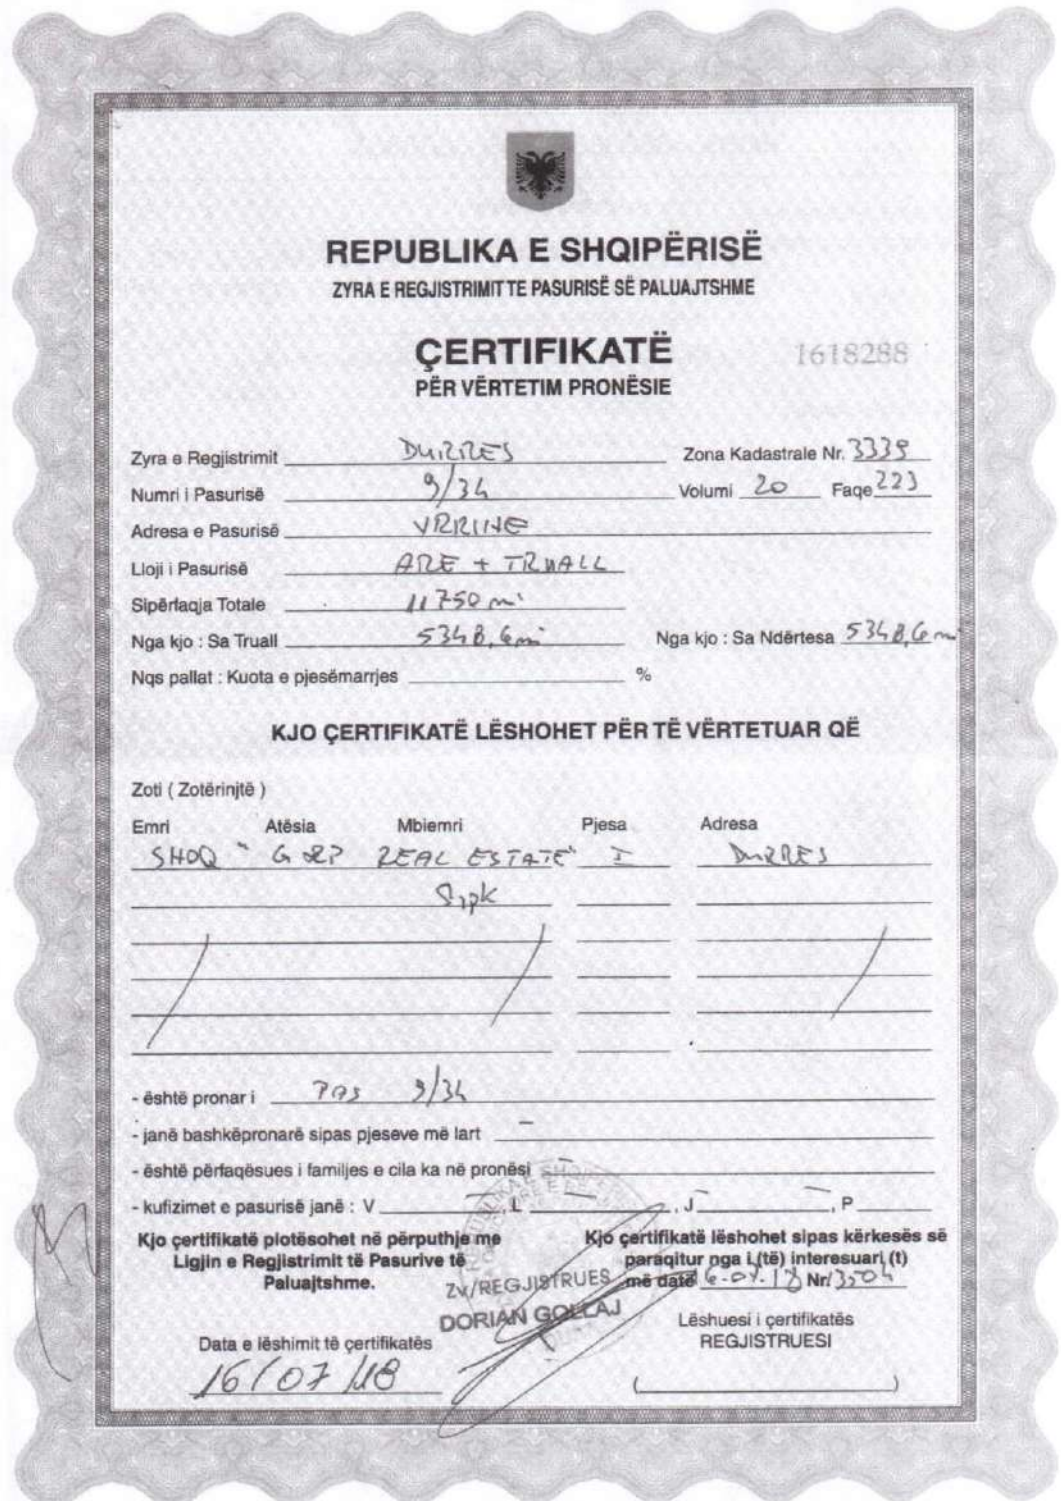 REPUBLIKA E SHQIPËRISË
ZYRA E REGJISTRIMIT TE PASURISË SË PALUAJTSHME
ÇERTIFIKATË 1618288
PËR VËRTETIM PRONËSIE
Zyra e Regjistrimit DURRES Zona Kadastrale Nr. 3339
Numri i Pasurisë 9/34 Volumi 20 Faqe 223
Adresa e Pasurisë VRRINE
Lloji i Pasurisë ARE + TRUALL
Sipërfaqja Totale 11750 m²
Nga kjo : Sa Truall 5348,6 m² Nga kjo : Sa Ndërtesa 5348,6 m²
Nqs pallat : Kuota e pjesëmarrjes %
KJO ÇERTIFIKATË LËSHOHET PËR TË VËRTETUAR QË
Zoti ( Zotërinjtë )
Emri Atësia Mbiemri Pjesa Adresa
SHOQ " G &P REAL ESTATE" I DURRES
Sh.p.k
- është pronar i Pas 9/34
- janë bashkëpronarë sipas pjeseve më lart –
- është përfaqësues i familjes e cila ka në pronësi –
- kufizimet e pasurisë janë : V – , L – , J – , P –
Kjo çertifikatë plotësohet në përputhje me Kjo çertifikatë lëshohet sipas kërkesës së
Ligjin e Regjistrimit të Pasurive të paraqitur nga i,(të) interesuari,(t)
Paluajtshme. Zv/REGJISTRUES më datë Nr.
DORIAN GOLLAJ Lëshuesi i çertifikatës
Data e lëshimit të çertifikatës REGJISTRUESI
16/07/18 ( )